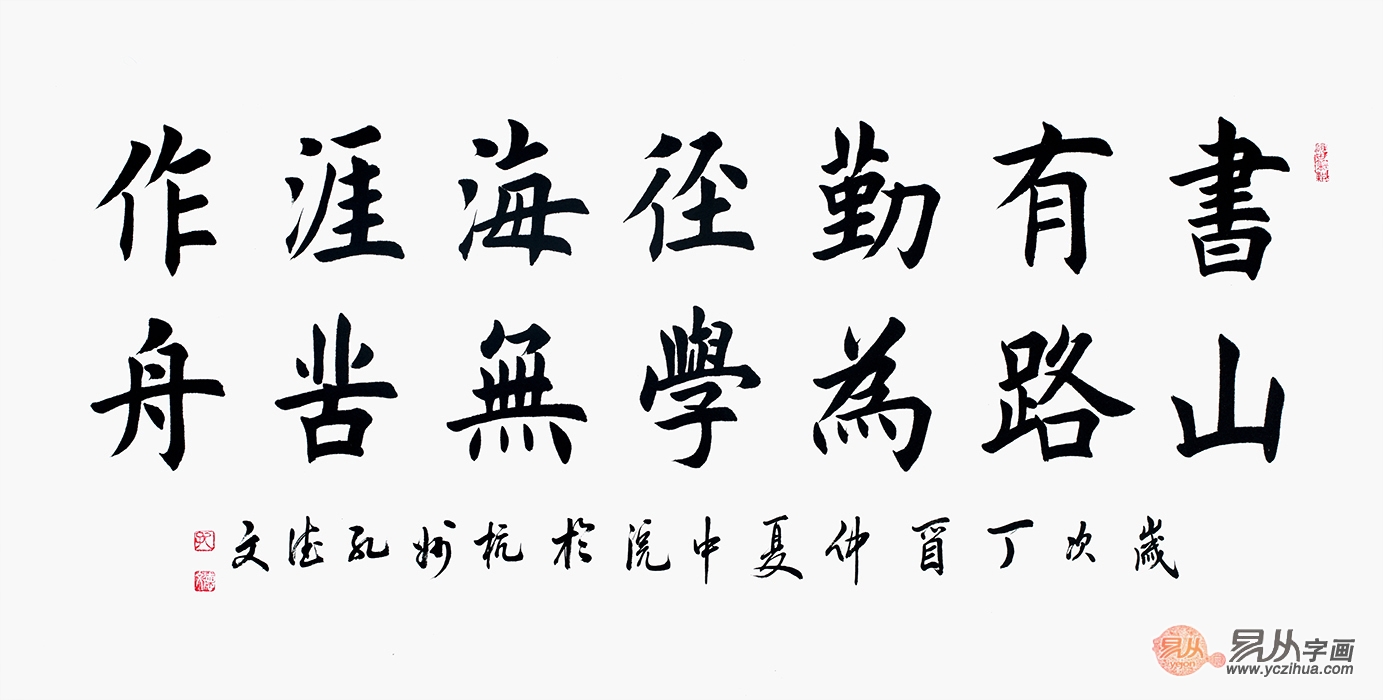 書山
有路
勤為
径學
海無
涯苦
作舟
歲次丁酉仲夏中浣於杭州孔德文
易从
易从字画
www.yczihua.com